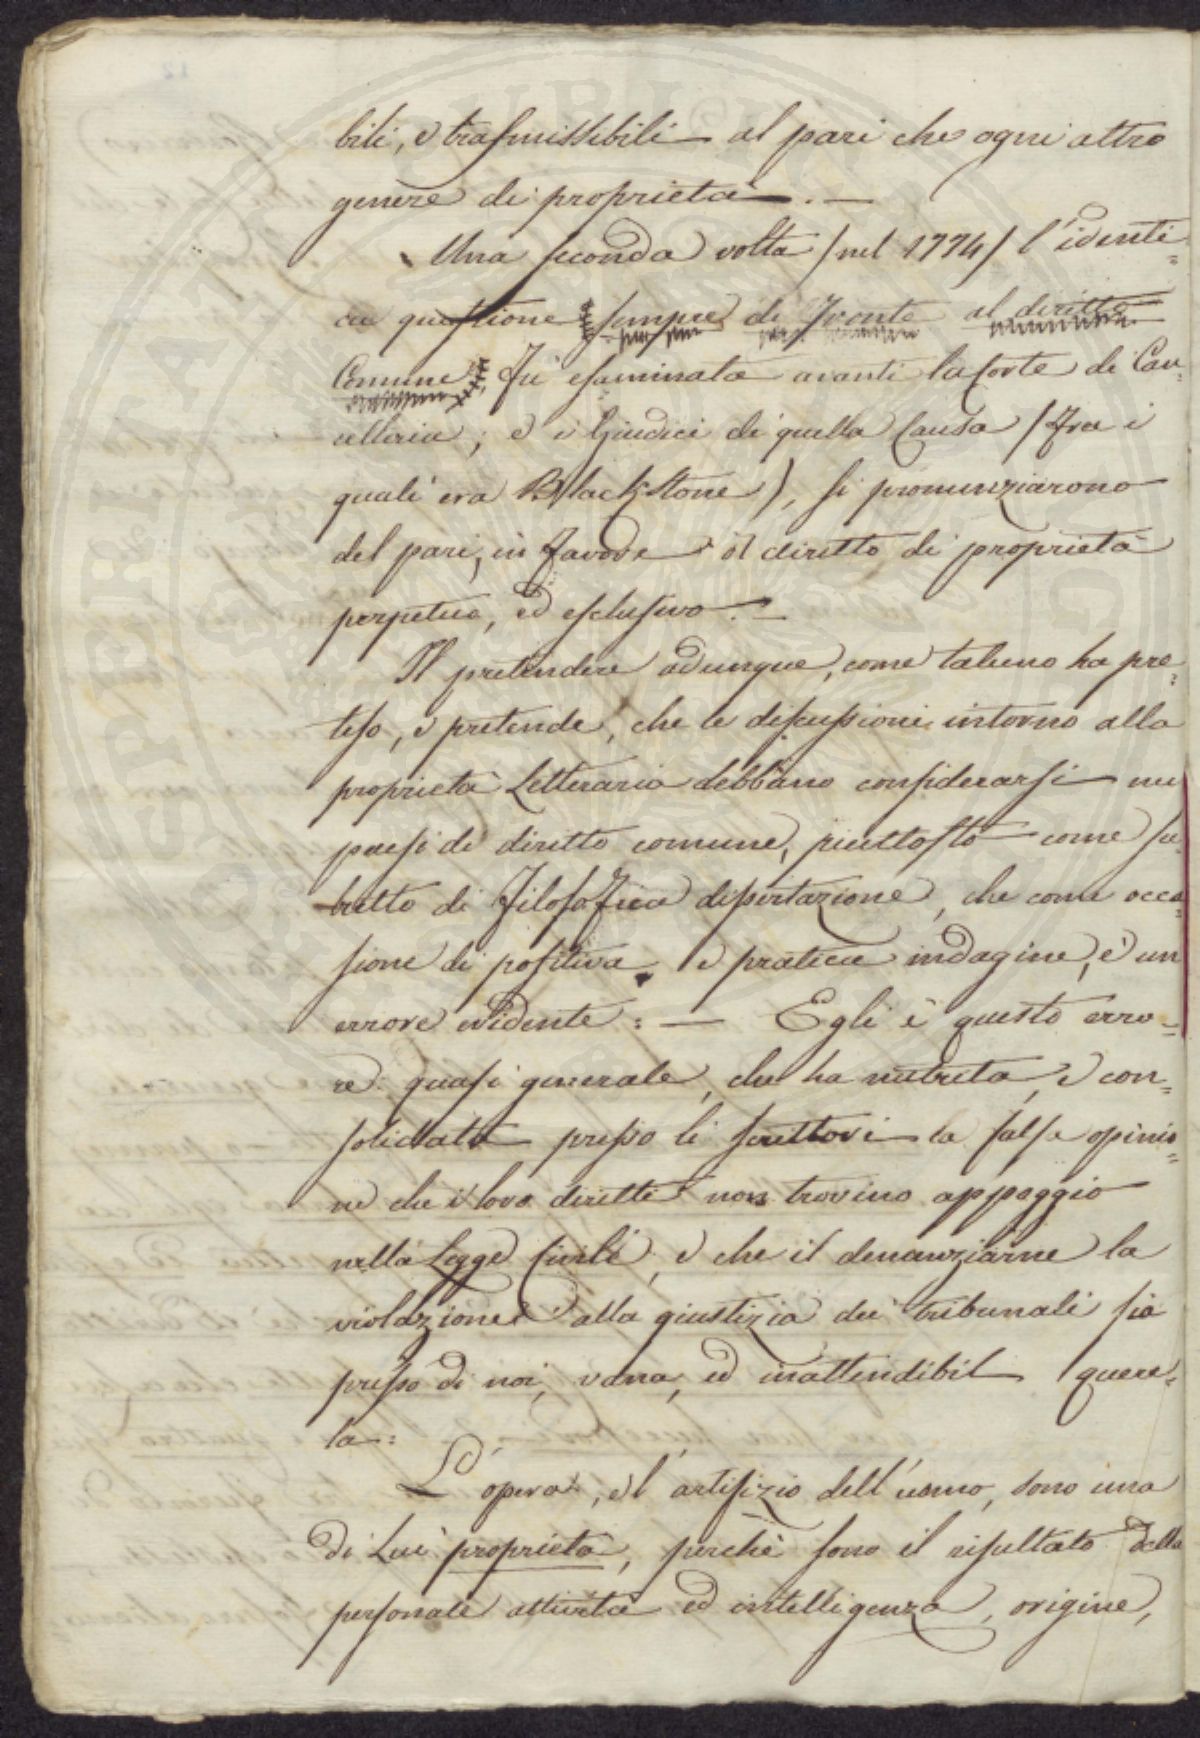 bili, e trasmissibili al pari che ogni altro
genere di proprietà. —
Una seconda volta /nel 1774/ l'identi=
ca questione sempre di fronte al diritto
Comune, fu esaminata avanti la Corte di Can=
celleria; e i Giudici di quella Causa /fra i
quali era Blackstone), si pronunziarono
del pari, in favore il diritto di proprietà
perpetuo, ed esclusivo. —
Il pretendere adunque, come taluno ha pre=
teso, e pretende, che le discussioni intorno alla
proprietà Letteraria debbano considerarsi nei
paesi di diritto comune, piuttosto come su=
bietto di filosofica dissertazione, che come occa=
sione di positiva e pratica indagine, è un
errore evidente: — Egli è questo erro=
re quasi generale, che ha nutrita, e con=
solidata presso li scrittori la falsa opinio=
ne che i loro diritti non trovino appoggio
nella Legge Civile, e che il denunziarne la
violazione alla giustizia dei tribunali sia
presso di noi, vana, ed inattendibil quere=
la:
L'opera, e l'artifizio dell'uomo, sono una
di Lui proprietà, perchè sono il risultato della
personale attività ed intelligenza, origine,